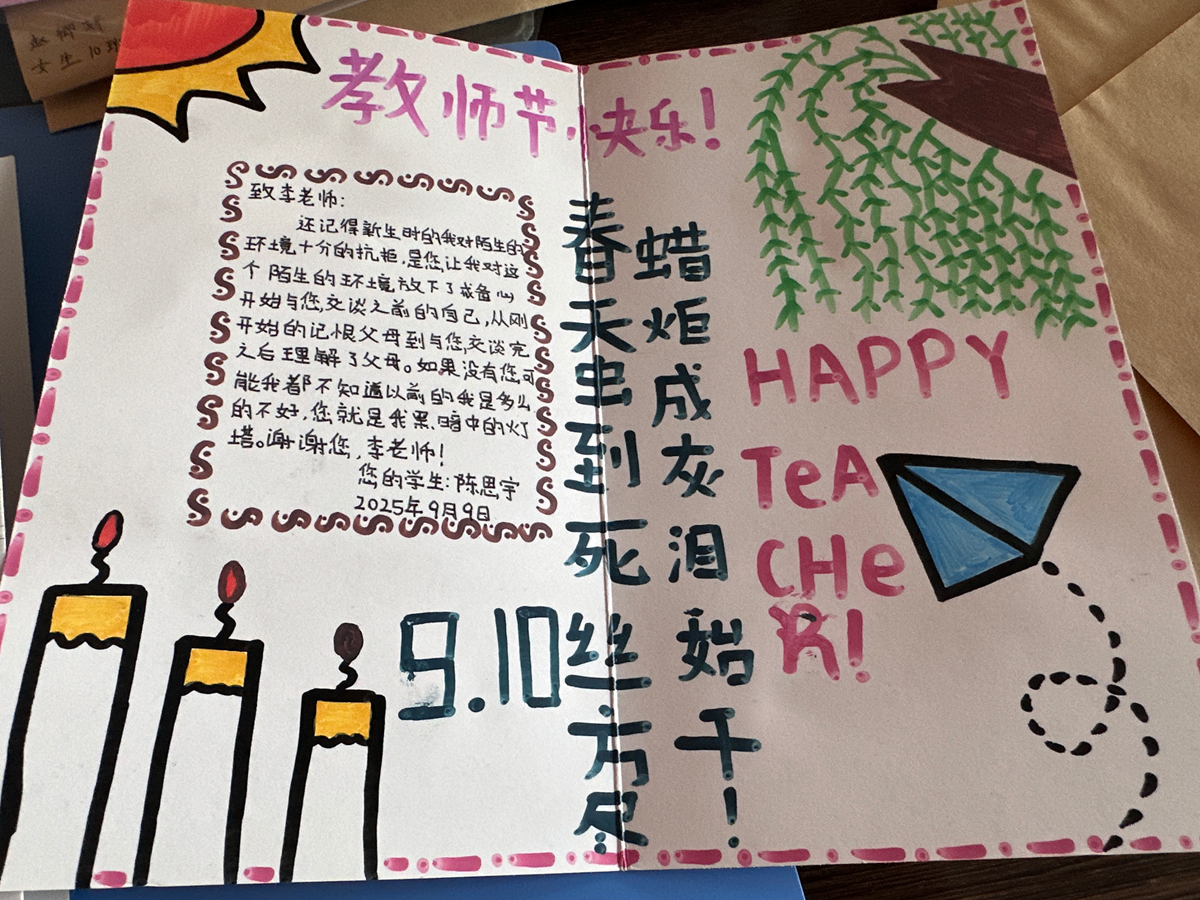 教师节快乐!
致李老师:
还记得新生时的我对陌生的
环境十分的抗拒,是您让我对这
个陌生的环境放下了戒备心
开始与您交谈之前的自己,从刚
开始的记恨父母到与您交谈完
之后理解了父母。如果没有您可
能我都不知道以前的我是多么
的不好,您就是我黑暗中的灯
塔。谢谢您,李老师!
您的学生:陈思宇
2025年9月9日
9.10
春天虫到死丝方尽
蜡炬成灰泪始干!
HAPPY
TeA
CHe
R!
女生10班